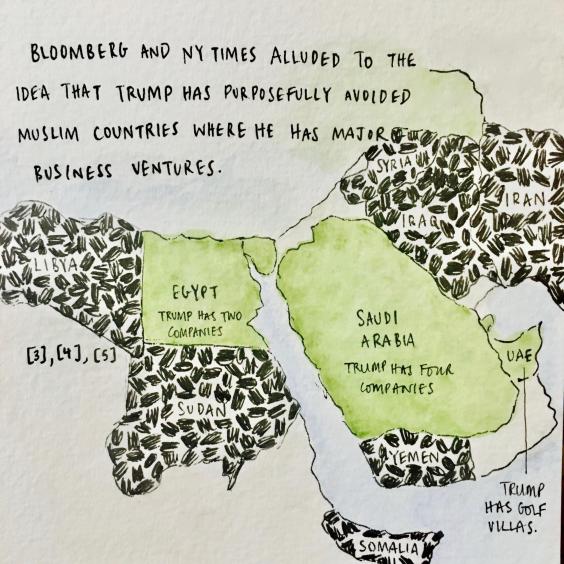 BLOOMBERG AND NY TIMES ALLUDED TO THE
IDEA THAT TRUMP HAS PURPOSEFULLY AVOIDED
MUSLIM COUNTRIES WHERE HE HAS MAJOR
BUSINESS VENTURES.
SYRIA
IRAN
IRAQ
LIBYA
EGYPT
TRUMP HAS TWO
COMPANIES
SAUDI
ARABIA
TRUMP HAS FOUR
COMPANIES
UAE
[3], [4], [5]
SUDAN
YEMEN
TRUMP
HAS GOLF
VILLAS.
SOMALIA